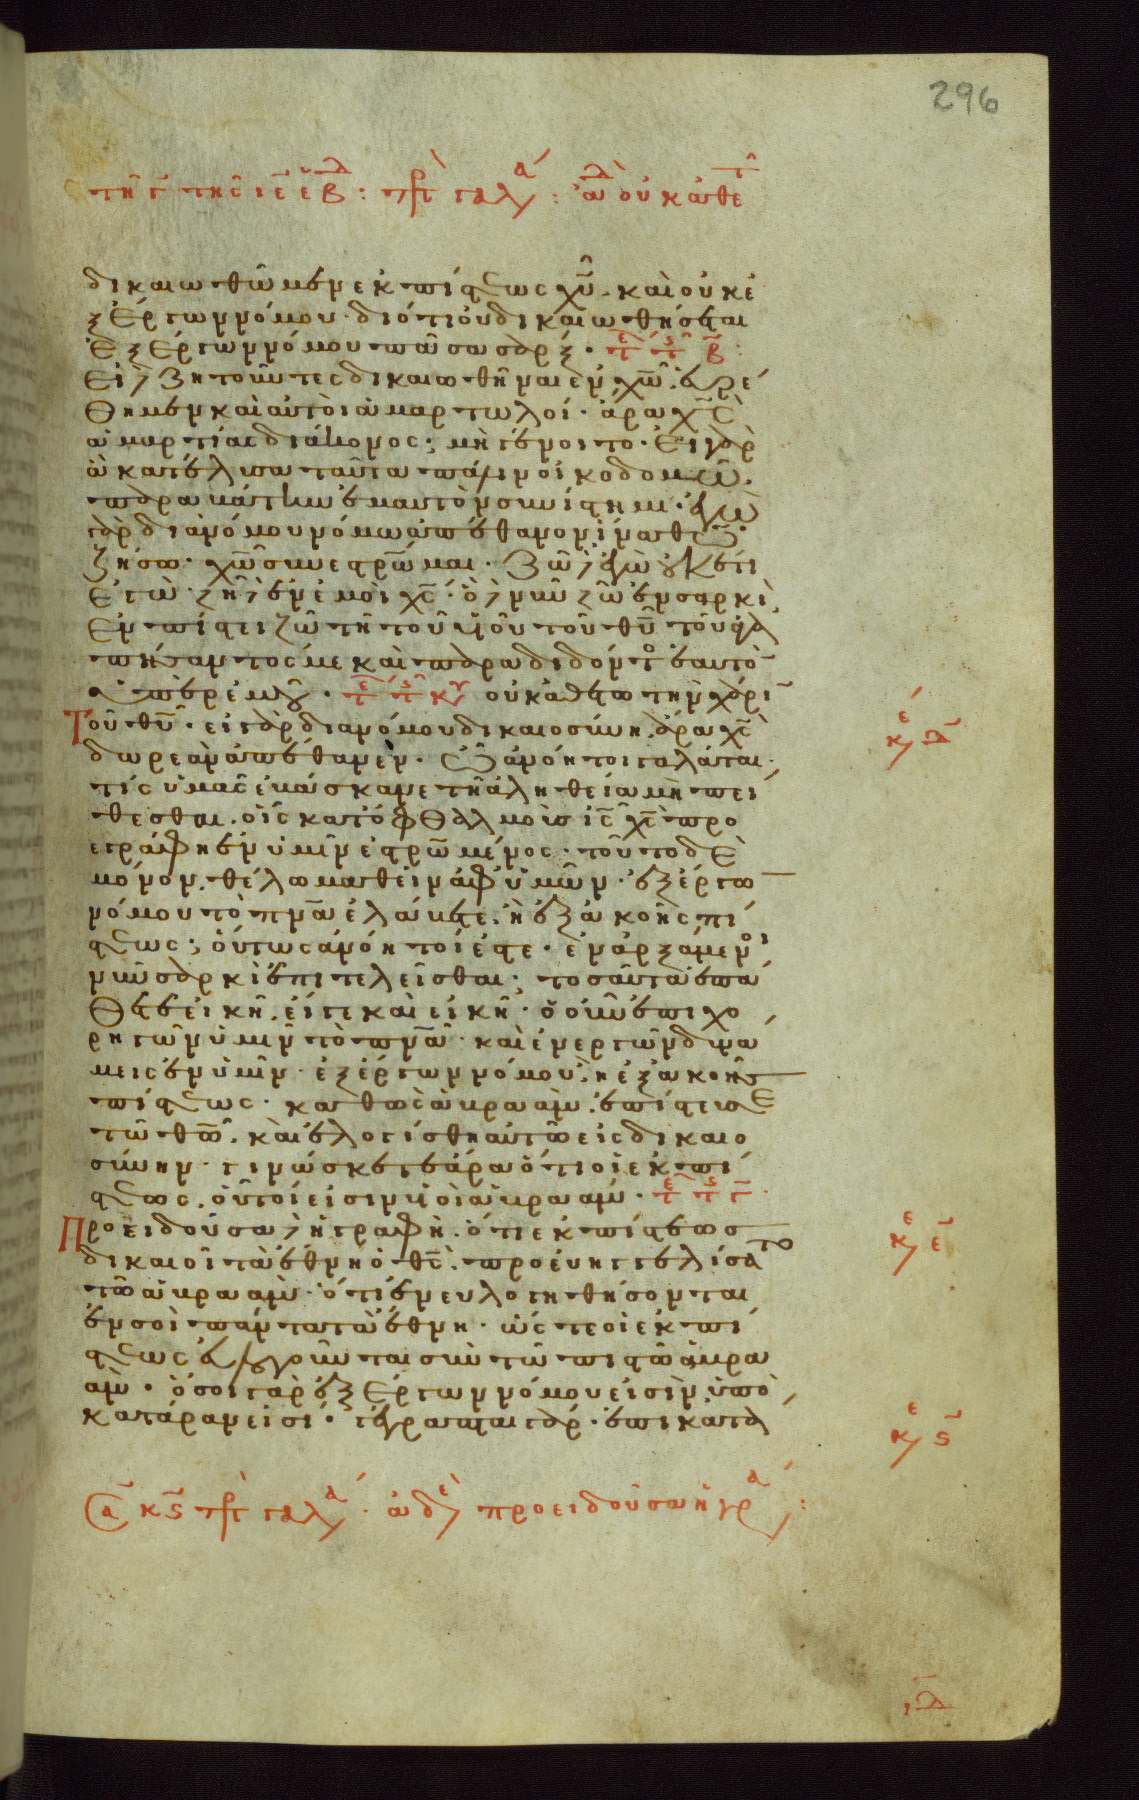 296
τῇ γ τῆς ιε ἑβδ : πρ γαλ : ἀδ οὐκ ἀθετ
δικαιωθῶμεν ἐκ πίστεως χῦ. καὶ οὐκ ἐ
ξ ἔργων νόμου· διότι οὐ δικαιωθήσεται
ἐξ ἔργων νόμου πᾶσα σάρξ·
Εἰ δὲ ζητοῦντες δικαιωθῆναι ἐν χω. εὑρέ
θημεν καὶ αὐτοὶ ἁμαρτωλοί· ἆρα χς
ἁμαρτίας διάκονος; μὴ γένοιτο· Εἰ γὰρ
ἃ κατέλυσα ταῦτα πάλιν οἰκοδομῶ.
παραβάτην ἐμαυτὸν συνίστημι· ἐγὼ
γὰρ διὰ νόμου νόμω ἀπέθανον ἵνα θῶ
ζήσω· χῶ συνεσταύρωμαι· ζῶ δὲ οὐκέτι
ἐγώ· ζῆ δὲ ἐν ἐμοὶ χς· ὃ δὲ νῦν ζῶ ἐν σαρκὶ
Ἐν πίστει ζῶ τῆ τοῦ υἱοῦ τοῦ θυ τοῦ ἀγα
πήσαντός με καὶ παραδόντος ἑαυτὸ
ὑπὲρ ἐμοῦ· οὐκ ἀθετῶ τὴν χάριν
Τοῦ θυ· εἰ γὰρ διὰ νόμου δικαιοσύνη. ἄρα χς
δωρεὰν ἀπέθανεν· Ὦ ἀνόητοι γαλάται·
τίς ὑμᾶς ἐβάσκανε τῆ ἀληθεία μὴ πεί
θεσθαι. οἷς κατ ὀφθαλμοὺς ις χς προ
εγράφη ἐν ὑμῖν ἐσταυρωμένος· τοῦτο δὲ
μόνον. θέλω μαθεῖν ἀφ ὑμῶν· ἐξ ἔργω
νόμου τὸ πνα ἐλάβετε. ἢ ἐξ ἀκοῆς πί
στεως; οὕτως ἀνόητοί ἐστε· ἐναρξάμενοι
νῦν σαρκὶ ἐπιτελεῖσθαι; τοσαῦτα ἐπά
θετε εἰκῆ. εἴ γε καὶ εἰκῆ· ὁ οὖν ἐπιχο
ρηγῶν ὑμῖν τὸ πνα· καὶ ἐνεργῶν δυνά
μεις ἐν ὑμῖν· ἐξ ἔργων νόμου. ἢ ἐξ ἀκοῆς
πίστεως· καθὼς ἀβραὰμ. ἐπίστευσε
τῶ θω. καὶ ἐλογίσθη αὐτῶ εἰς δικαιο
σύνην· γινώσκετε ἄρα ὅτι οἱ ἐκ πί
στεως. οὗτοί εἰσιν υἱοὶ ἀβραάμ·
Προειδοῦσα δὲ ἡ γραφὴ. ὅτι ἐκ πίστεως
δικαιοῖ τὰ ἔθνη ὁ θς. προευηγγελίσατο
τῶ ἀβραὰμ· ὅτι ἐνευλογηθήσονται
ἐν σοὶ πάντα τὰ ἔθνη· ὥστε οἱ ἐκ πί
στεως εὐλογοῦνται σὺν τῶ πιστῶ ἀβρα
ὰμ· ὅσοι γὰρ ἐξ ἔργων νόμου εἰσὶν. ὑπὸ
κατάραν εἰσί· γέγραπται γάρ· ἐπικατά
κε δ
κε ε
κε ς
Σα κς πρ γαλ· ἀδε προειδοῦσα ἡ γρα :